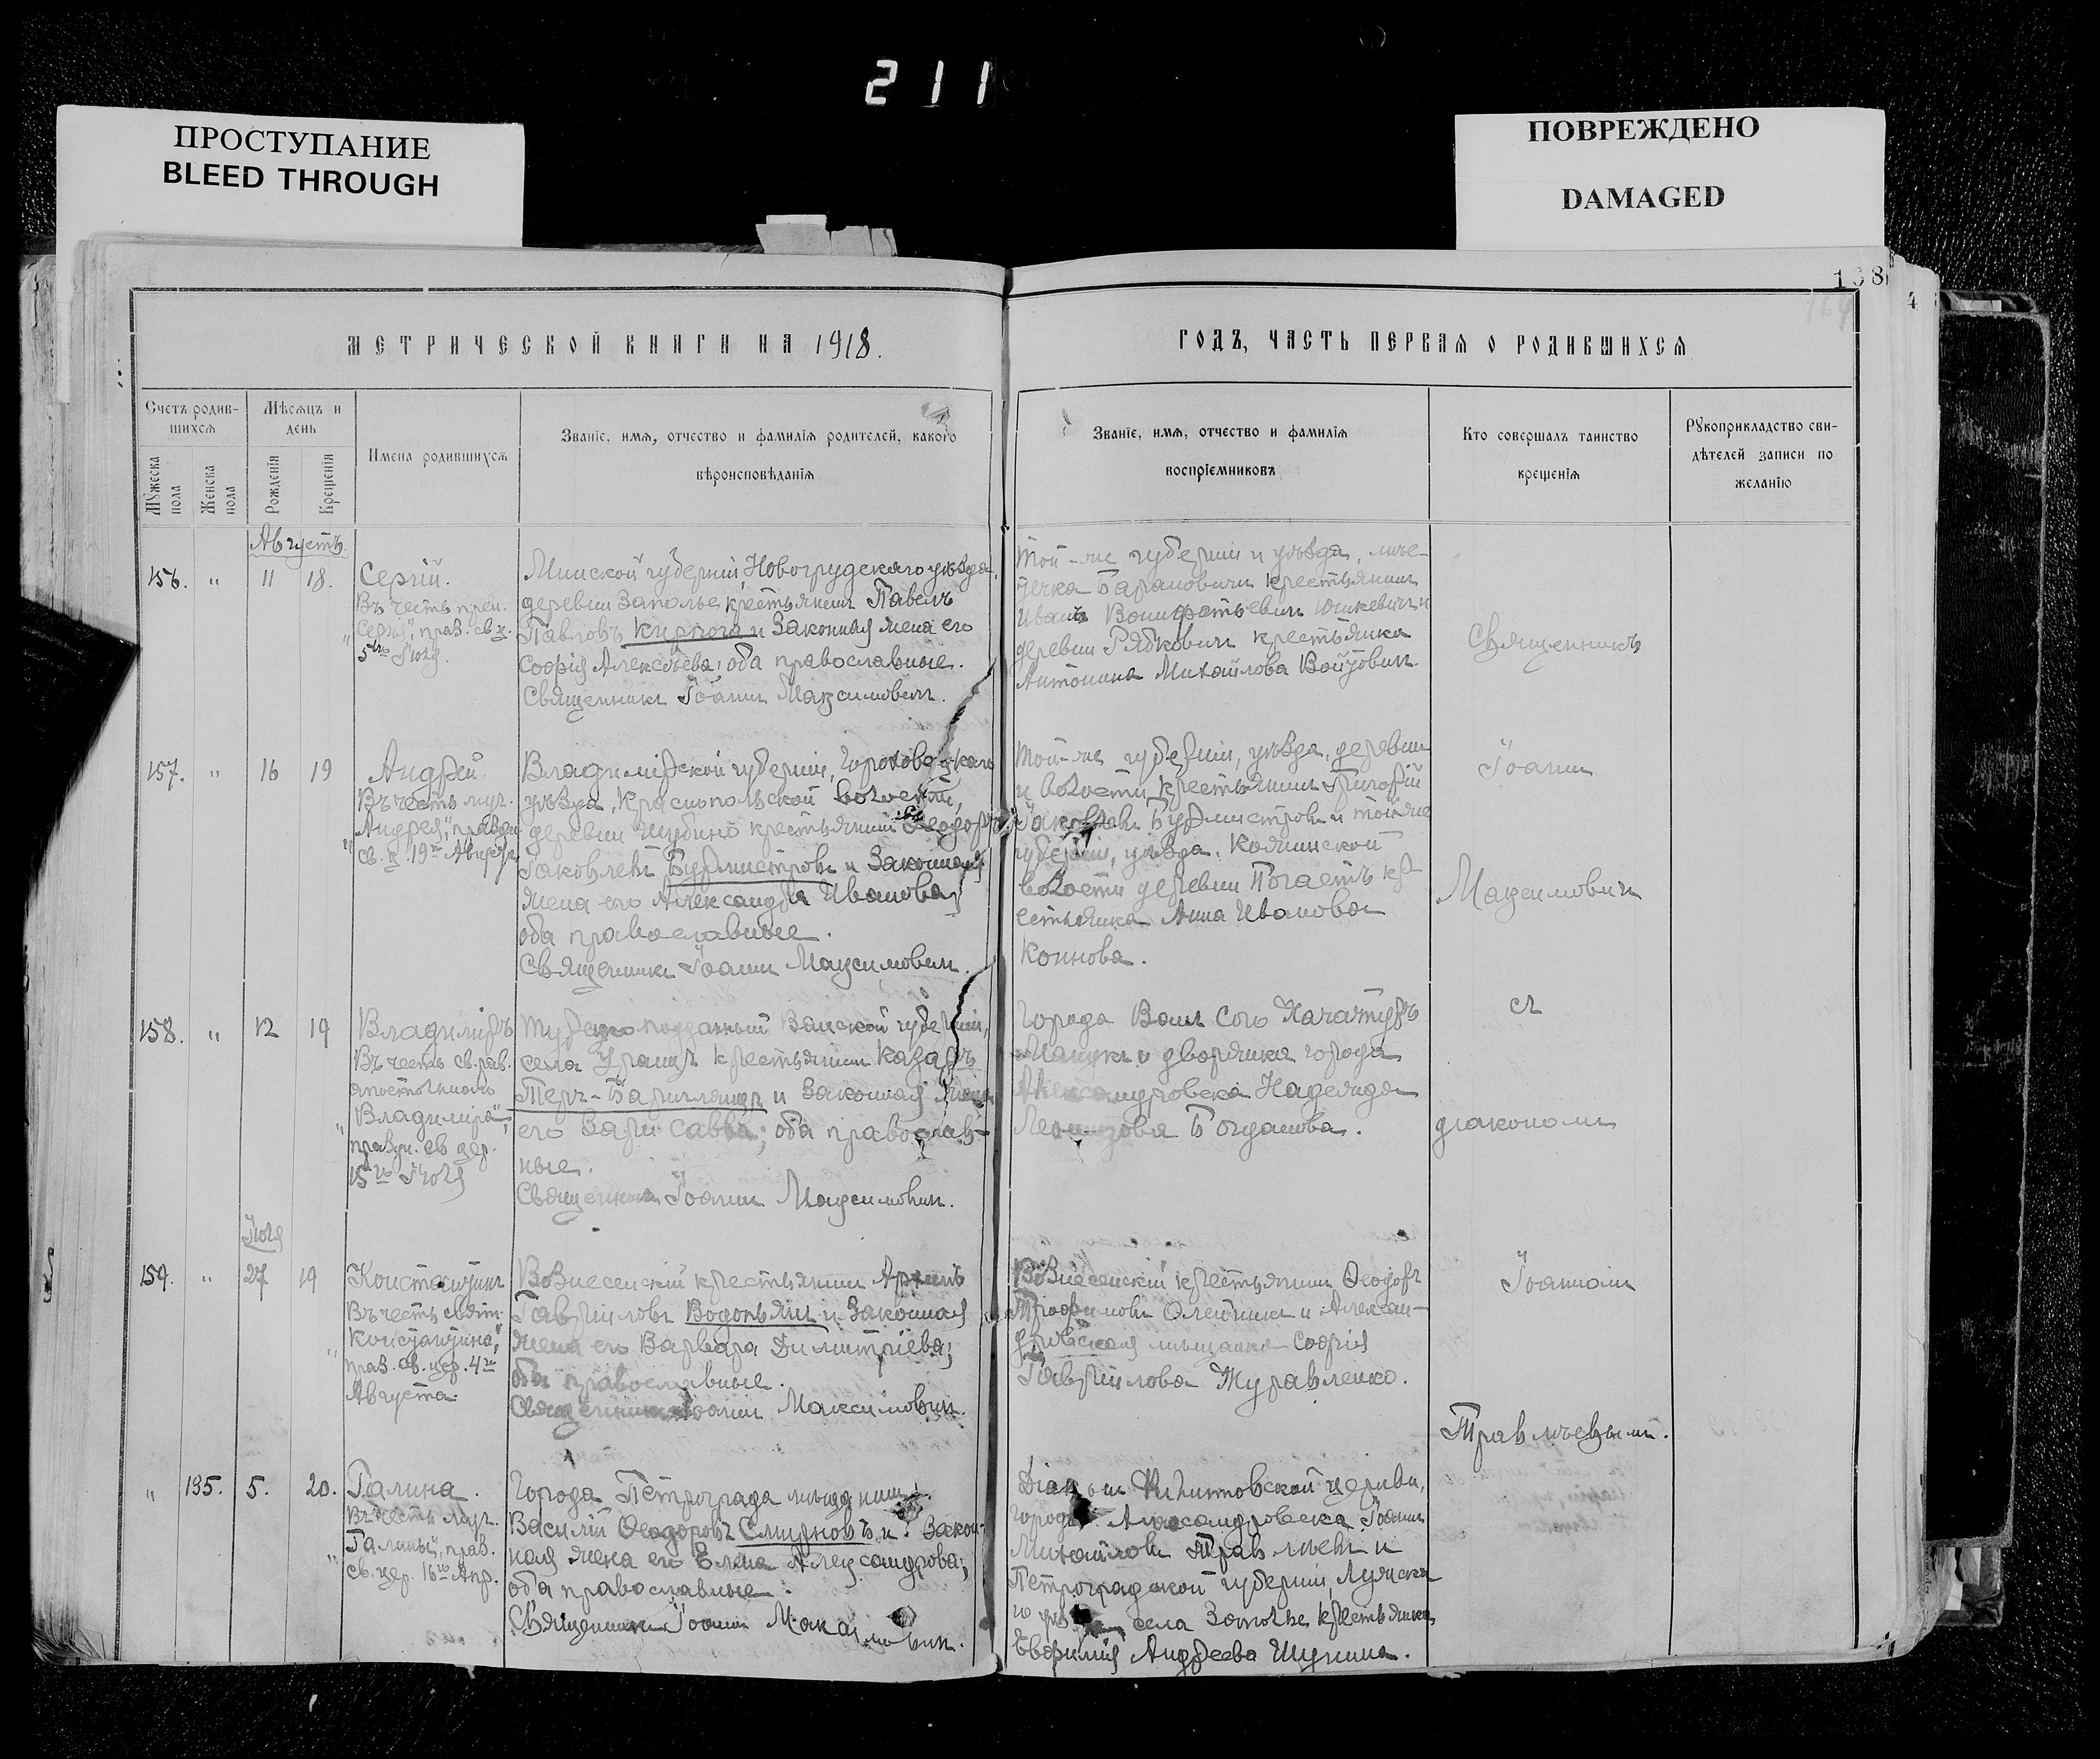 211
ПРОСТУПАНИЕ
BLEED THROUGH
ПОВРЕЖДЕНО
DAMAGED
МЕТРИЧЕСКОЙ КНИГИ НА 1918.
Счетъ родив-
шихся
Мѣсяцъ и
день
Мужеска
пола
Женска
пола
Рожденія
Крещенія
Имена родившихся
Званіе, имя, отчество и фамилія родителей, какого
вѣроисповѣданія
Августъ.
156. " 11 18.
Сергій.
Въ честь преп.
"Сергія", праз. св. ц.
5го Іюля.
Минской губерніи, Новогрудскаго уѣзда,
деревни Заполье крестьянинъ Павелъ
Павловъ и законная жена его
Софія Алексѣева; оба православные.
Священникъ Іоаннъ Максимовичъ.
157. " 16 19
Андрей
Въ честь муч.
Андрея", праздн.
св. ц 19го Августа
Владимірской губерніи, Гороховецкаго
уѣзда, Краснопольской волости,
деревни Шубино крестьянинъ Ѳеодоръ
Іаковлевъ Бурмистровъ и законная
жена его Александра Иванова;
оба православные.
Священникъ Іоаннъ Максимовичъ.
158. " 12 19
Владиміръ
Въ честь св. рав.
апостольнаго
"Владиміра",
праздн. св. цер.
15го Іюля
подданный Ванской губерніи,
села крестьянинъ
и законная жена
его Савва; оба православ-
ные.
Священникъ Іоаннъ Максимовичъ.
Іюля
159. " 27 19
Константинъ
Въ честь свят.
"Константина",
праз. св. цер. 4го
Августа.
Вознесенскій крестьянинъ
Гавріиловъ Водопьянъ и законная
жена его Варвара Димитріева;
оба православные.
Священникъ Іоаннъ Максимовичъ.
" 135. 5. 20.
Галина.
Въ честь муч.
"Галины", праз.
св. цер. 16го Апр.
Города Петрограда мѣщанинъ
Василій Ѳеодоровъ Смирновъ и закон-
ная жена его Елена Александрова;
оба православные.
Священникъ Іоаннъ Максимовичъ.
ГОДЪ, ЧАСТЬ ПЕРВАЯ О РОДИВШИХСЯ
Званіе, имя, отчество и фамилія
воспріемниковъ
Кто совершалъ таинство
крещенія
Рукоприкладство сви-
дѣтелей записи по
желанію
Той-же губерніи и уѣзда, мѣс-
течка Барановичи крестьянинъ
Иванъ Юшкевичъ и
деревни крестьянка
Антонина Михайлова Войтовичъ.
Той-же губерніи, уѣзда, деревни
и волости крестьянинъ Григорій
Іаковлевъ Бурмистровъ и той же
губерніи, уѣзда,
волости деревни Погостъ кр-
естьянка Анна Иванова
Коннова.
Города Ванъ
и дворянка города
Александровска Надежда
Богданова.
Вознесенскій крестьянинъ Ѳеодоръ
Трофимовъ Олейникъ и Алексан-
дровская мѣщанка Софія
Гавріилова Журавленко.
Діаконъ церкви,
города Александровска Іоаннъ
Михайловъ Травлѣевъ и
Петроградской губерніи, Лужска
го села крестьянка
Евфимія Андреева
Священникъ
Іоаннъ
Максимовичъ
съ
діакономъ
Іоанномъ
Травлѣевымъ.